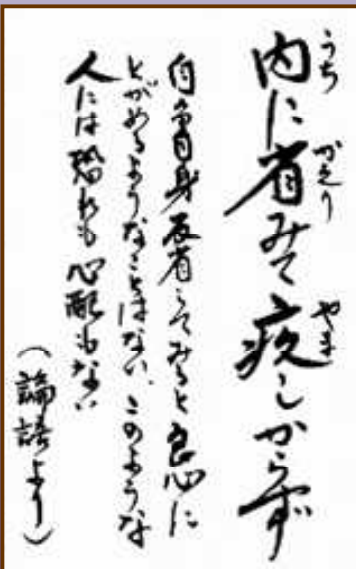 内に省みて疚しからず
うち かえり やま
自分自身反省してみると良心に
とがめるようなことはない、このような
人には恐れも心配もない
(論語より)